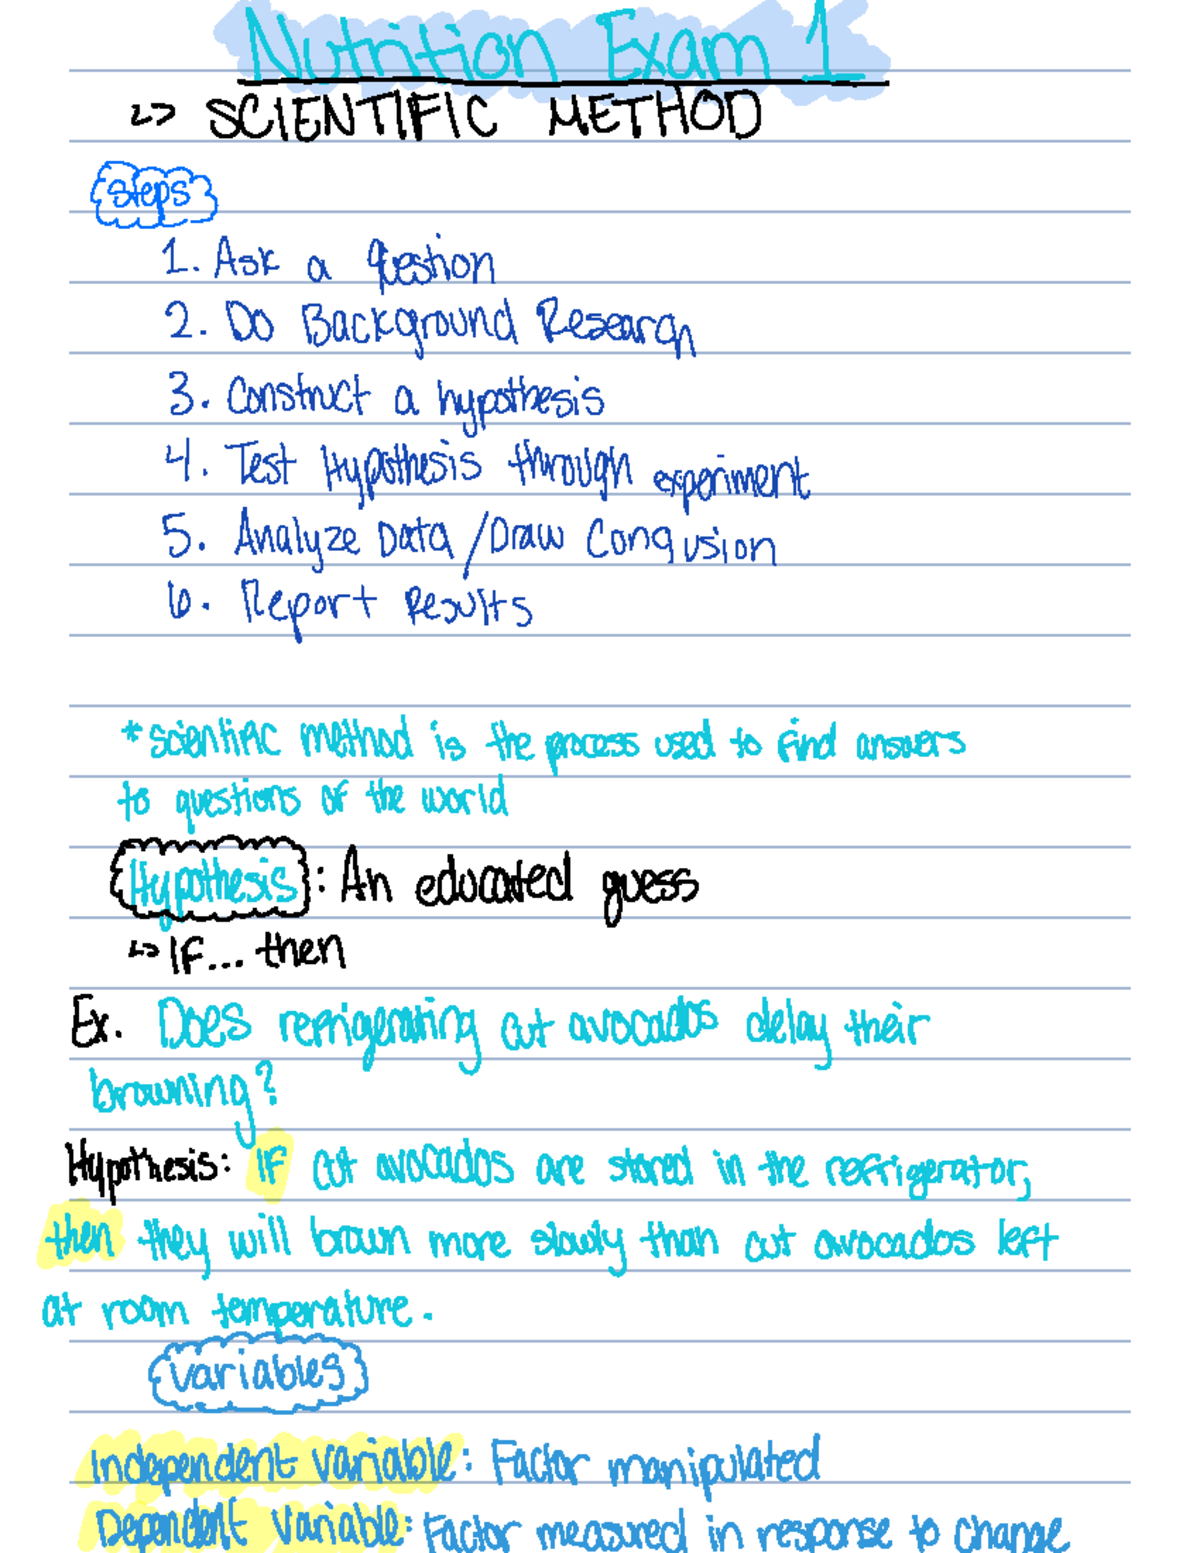 Nutrition Exam 1
↳> SCIENTIFIC METHOD
Steps
1. Ask a question
2. Do Background Research
3. Construct a hypothesis
4. Test Hypothesis through experiment
5. Analyze Data /Draw Conclusion
6. Report Results
*scientific method is the process used to find answers
to questions of the world
Hypothesis: An educated guess
↳> IF... then
Ex. Does refrigerating cut avocados delay their
browning?
Hypothesis: IF cut avocados are stored in the refrigerator,
then they will brown more slowly than cut avocados left
at room temperature.
variables
Independent variable: Factor manipulated
Dependent variable: Factor measured in response to change